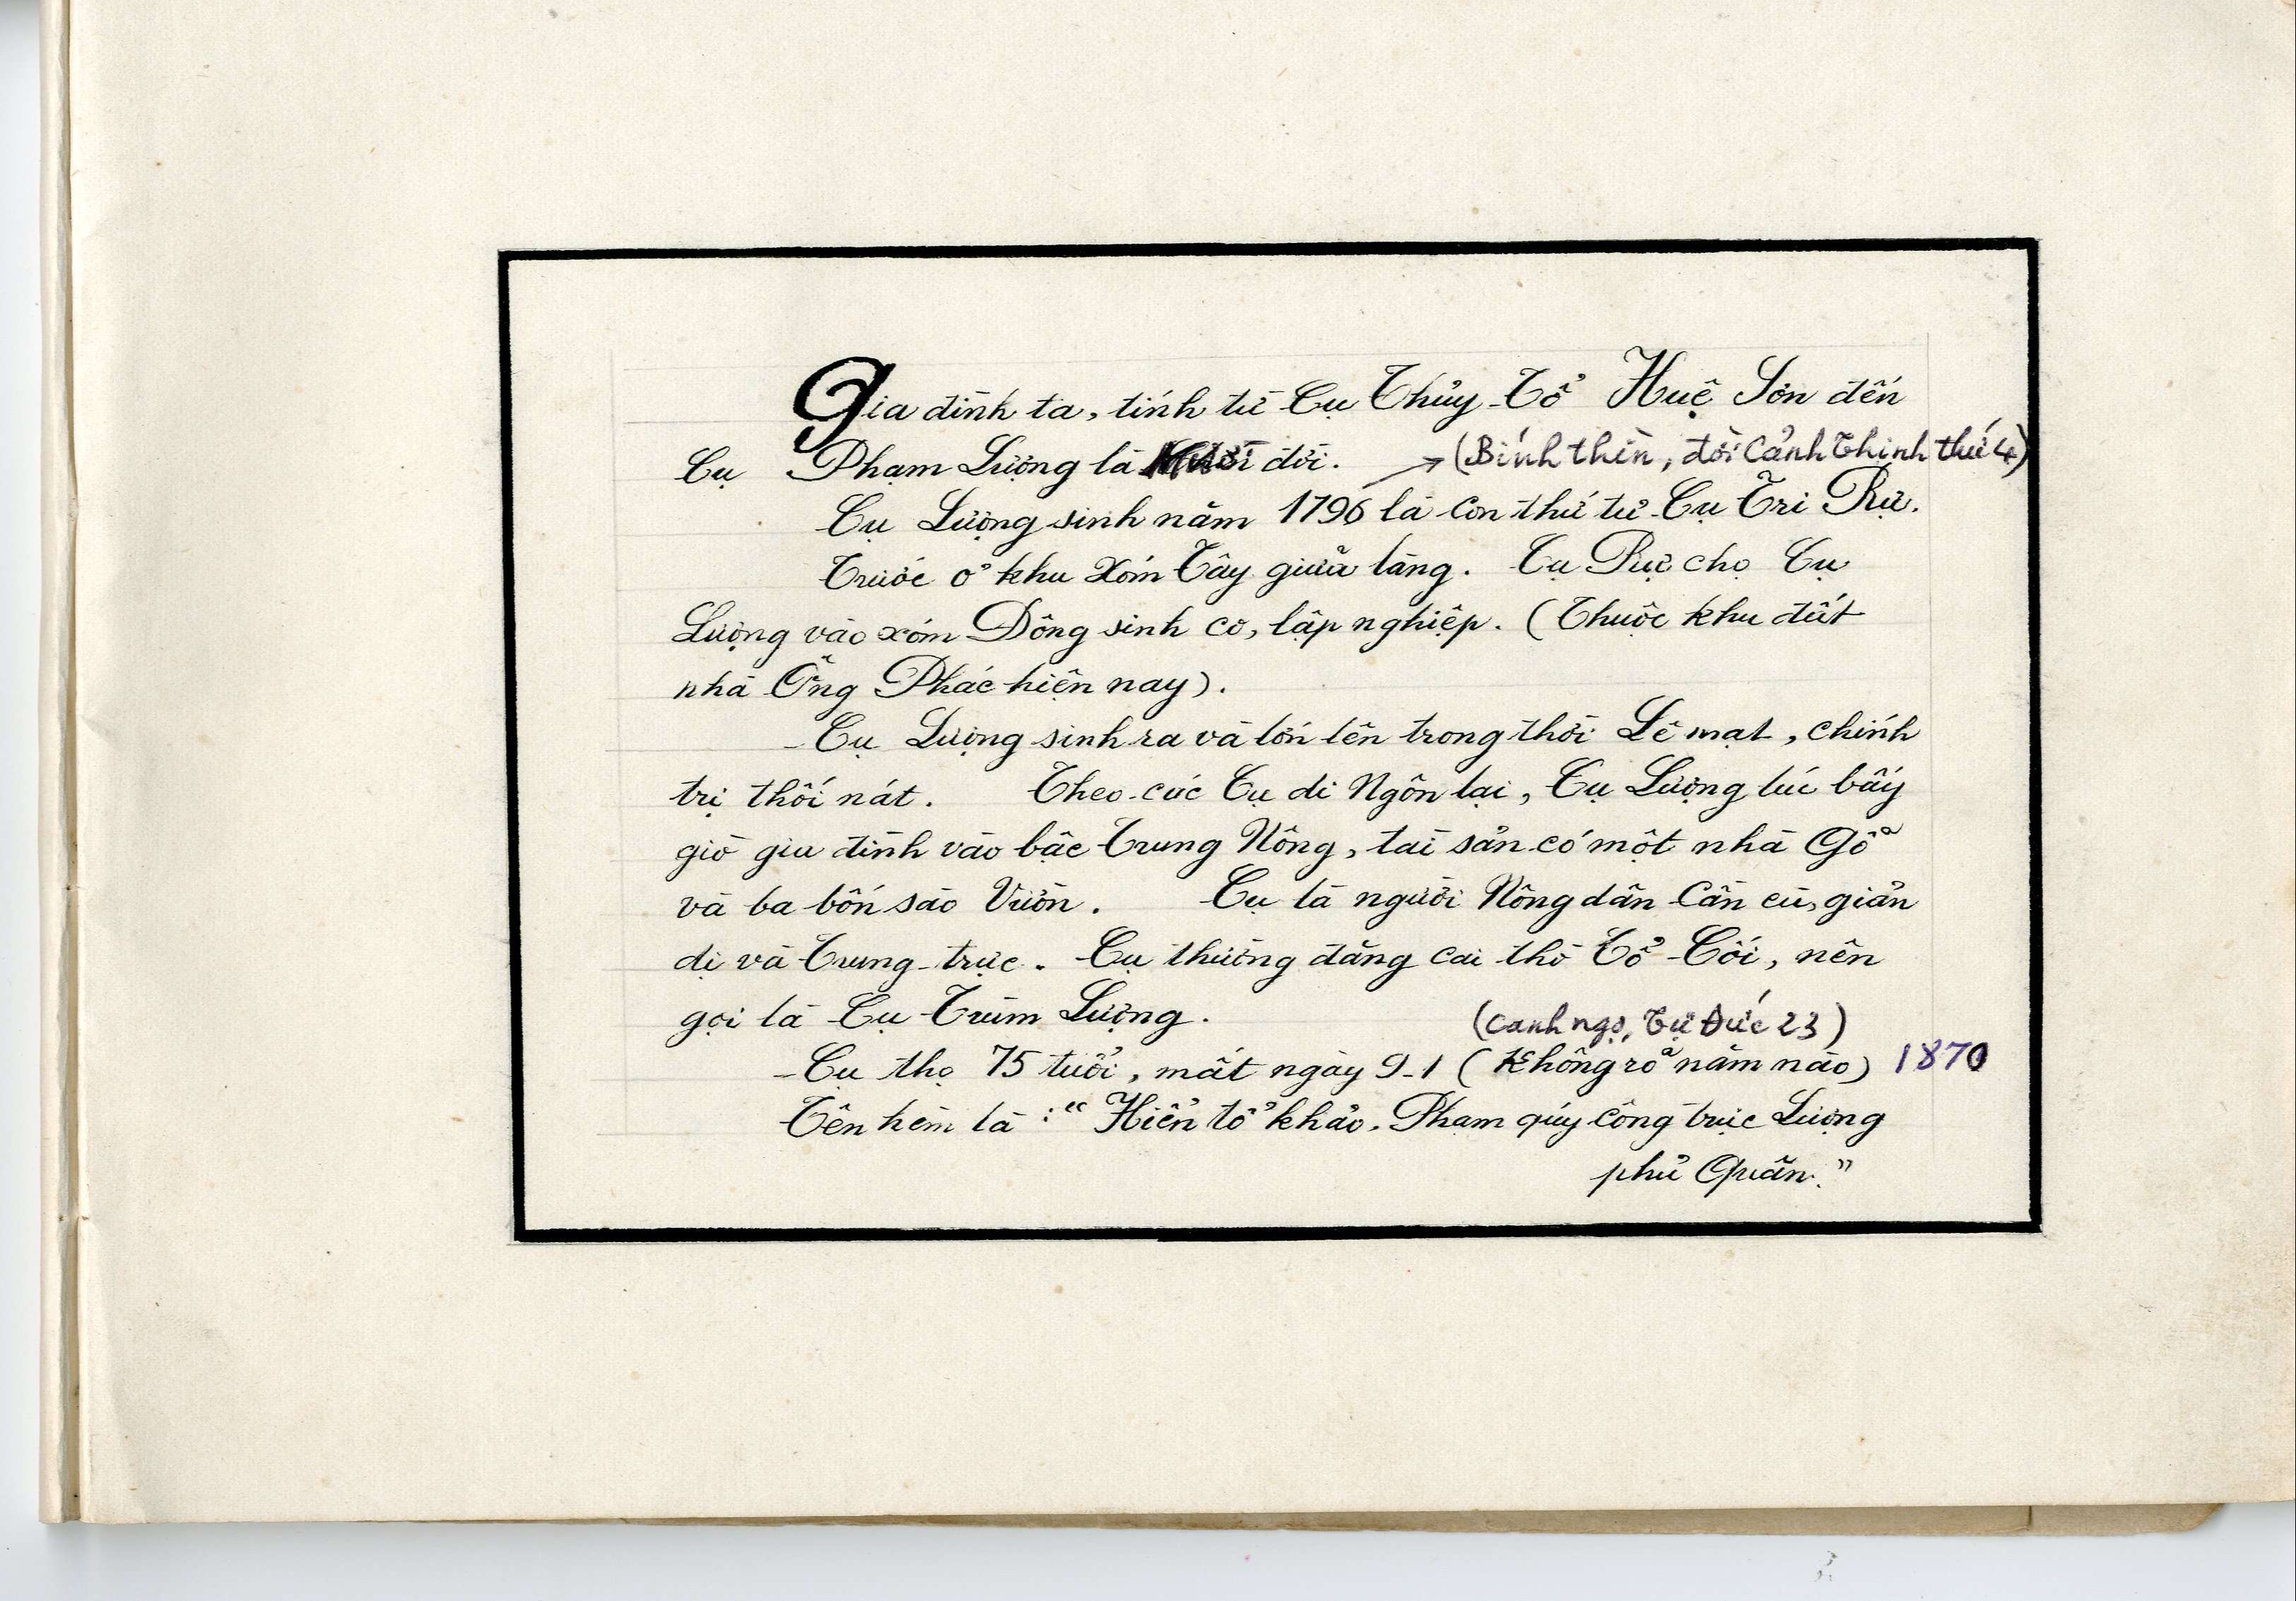 Gia đình ta, tính từ Cụ Thủy-Tổ Huệ Sơn đến
Cụ Phạm Lượng là đời. → (Bính thìn, đời Cảnh Thịnh thứ 4)
Cụ Lượng sinh năm 1796 là con thứ tư Cụ Tri Rự.
Trước ở khu Xóm Tây giữa làng. Cụ Rự cho Cụ
Lượng vào xóm Đông sinh cơ, lập nghiệp. (Thuộc khu đất
nhà Ông Phác hiện nay).
- Cụ Lượng sinh ra và lớn lên trong thời Lê mạt, chính
trị thối nát. Theo các Cụ di Ngôn lại, Cụ Lượng lúc bấy
giờ gia đình vào bậc Trung Nông, tài sản có một nhà Gỗ
và ba bốn sào Vườn. Cụ là người Nông dân Cần cù, giản
dị và Trung-trực. Cụ thường đăng cai thờ Tổ Cối, nên
gọi là Cụ Trùm Lượng.
(Canh ngọ, Tự Đức 23)
- Cụ thọ 75 tuổi, mất ngày 9-1 (Không rõ năm nào) 1870
Tên hèm là : "Hiển tổ khảo. Phạm quý công trực Lượng
phủ Quân."